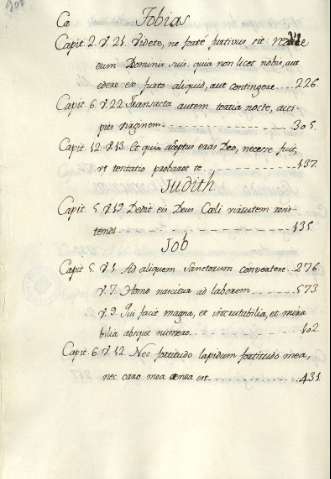 Co Tobias
Capit. 2. V. 21. Videte, ne forte furtivus sit
eum Dominis suis, quia non licet nobis, aut
edere ex furto aliquid, aut contingere 226
Capit. 6. V. 22. Transacta autem tertia nocte, acci-
pies virginem 305
Capit. 12. V. 13. Et quia aceptus eras Deo, necesse fuit,
ut tentatio probaret te 137
Judith
Capit. 5. V. 19. Dedit eis Deus Cæli virtutem resis-
tendi 135
Job
Capit. 5. V. 1. Ad aliquem Sanctorum convertere 276
V. 7. Homo nascitur ad laborem 573
V. 9. Qui facit magna, et inscrutabilia, et mira-
bilia absque numero 102
Capit. 6. V. 12. Nec fortitudo lapidum fortitudo mea,
nec caro mea ænea est 431